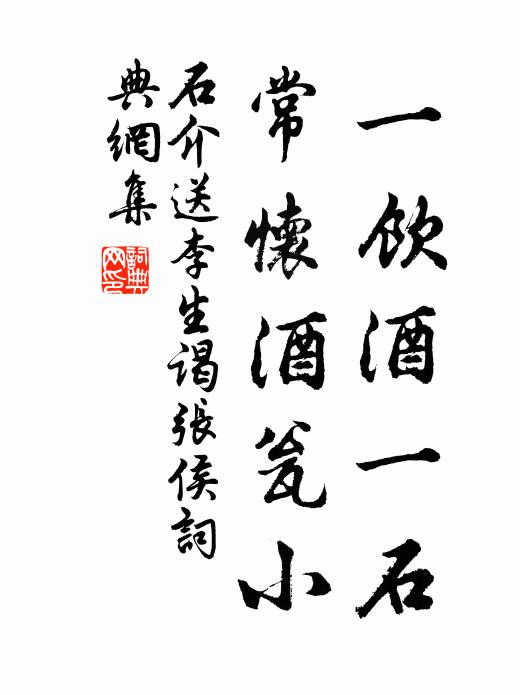 一飲酒一石
常懷酒瓮小
石介送李生謁張侯詞
典網集
詞典網印